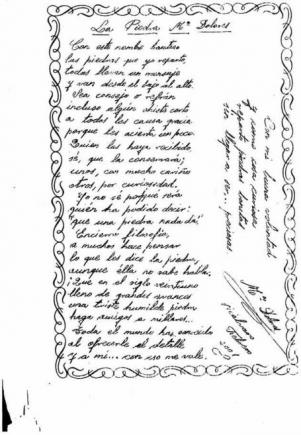 La Piedra Mª Dolores
Con este nombre bautizo
las piedras que yo reparto,
todas llevan un mensaje
y van desde el bajo al alto.
Sea consejo o refrán
incluso algún chiste corto
a todos les causa gracia
porque les acierta un poco.
Quien las haya recibido
sé, que la conservará;
unos, con mucho cariño
otros, por curiosidad.
Yo no sé porque será
quién ha podido decir:
"que una piedra nada dá"
Encierra filosofía,
a muchos hace pensar
lo que les dice la piedra,
aunque ella no sabe hablar,
¡Que en el siglo veintiuno
lleno de grandes avances
una triste humilde piedra
haga amigos a millares...
Toda el mundo ha conocido
al ofrecerle el detalle
Y a mi... con eso me vale.
Con mi buena voluntad
y como cosa curiosa
reparto piedras
sin llegar a ser... preciosas
Mª